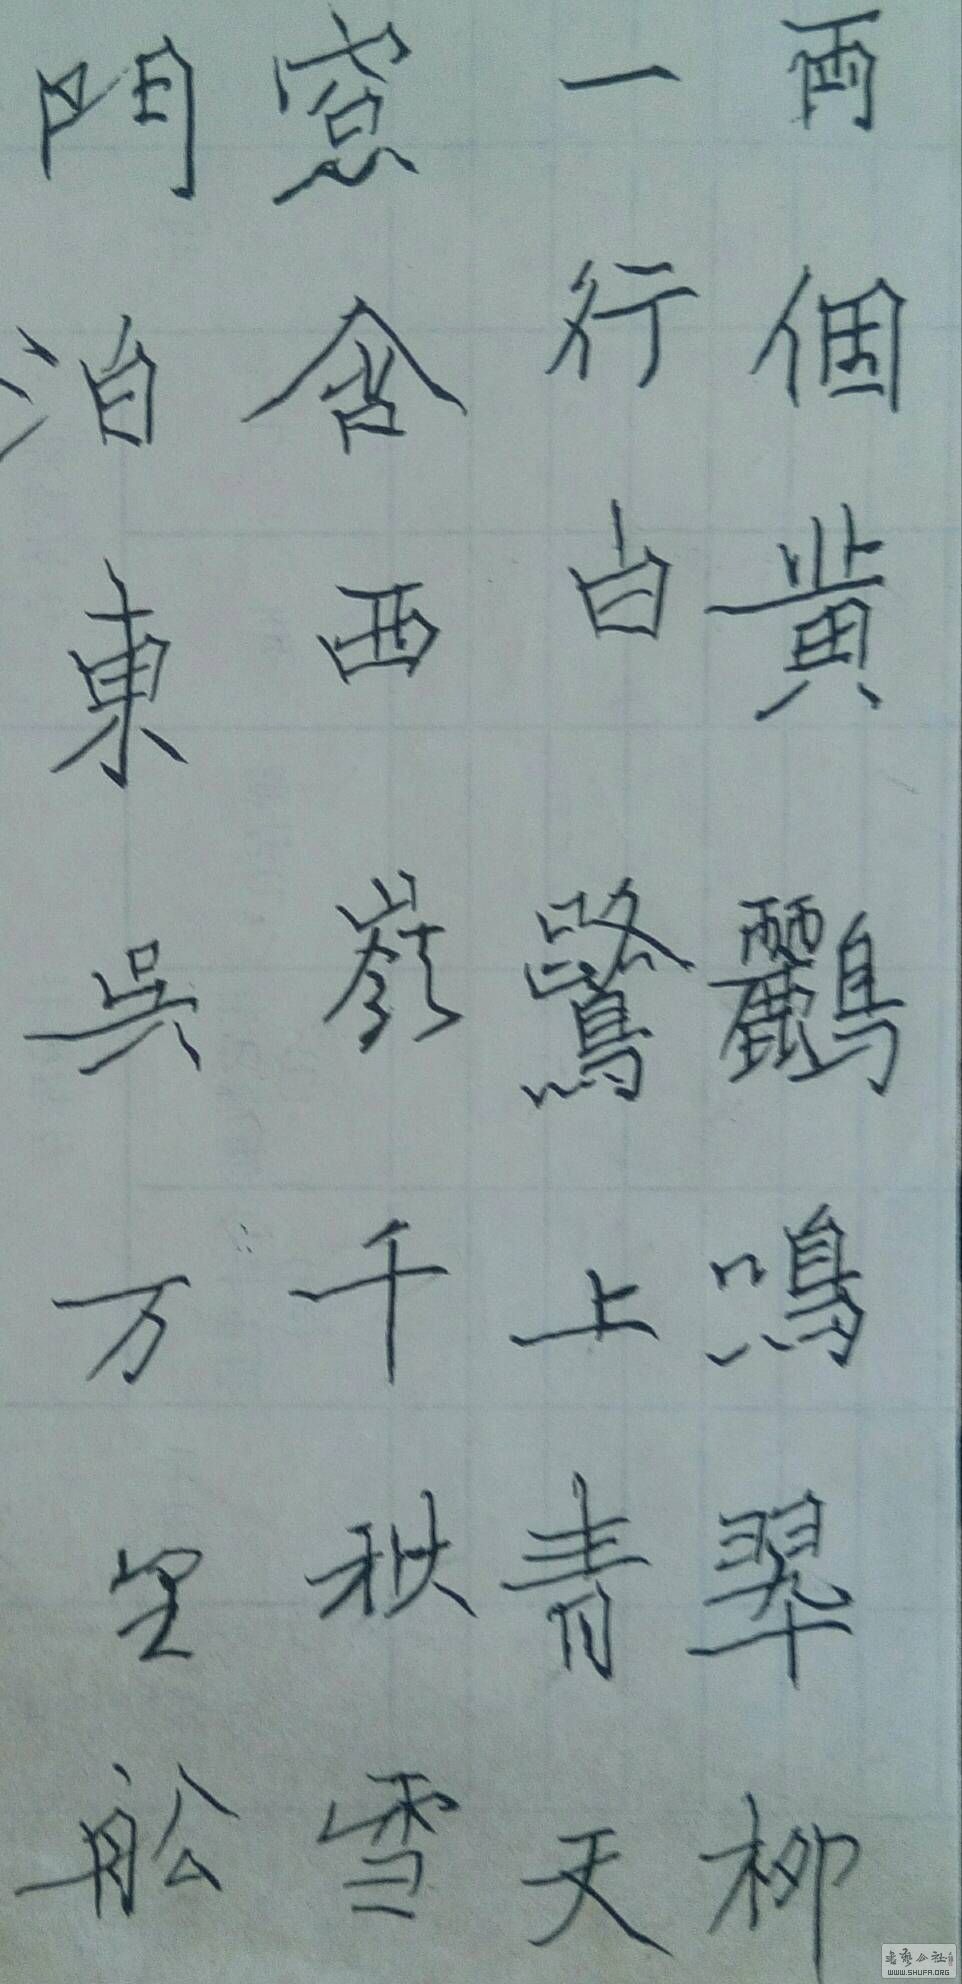 両個黄鸝鳴翠柳
一行白鷺上青天
窓含西嶺千秋雪
門泊東吳万里舩
書藝公社
WWW.SHUFA.ORG